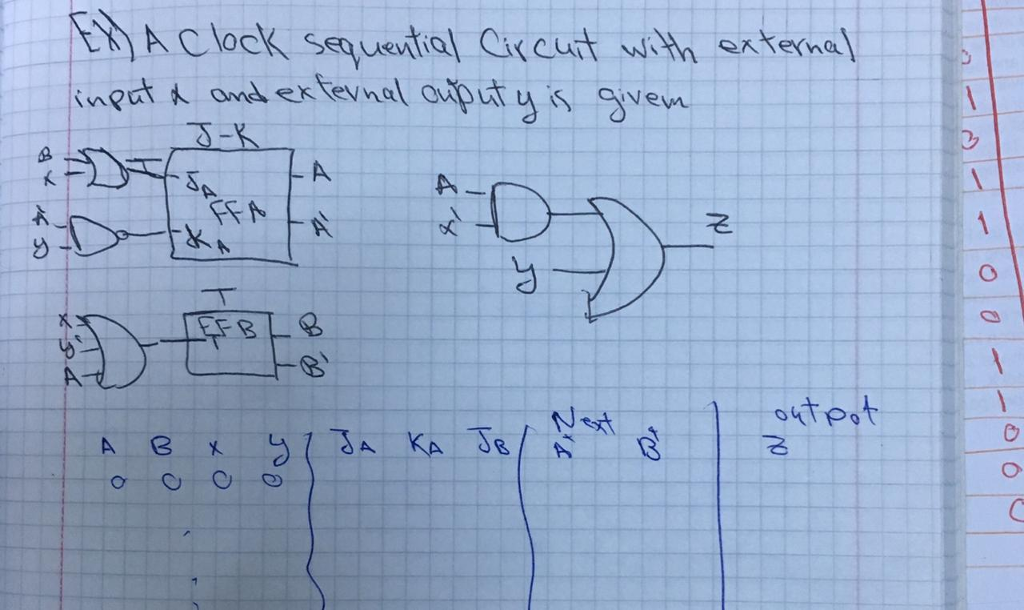 EX) A Clock sequential Circuit with external
input x and external ouput y is given
J-K
B
x
JA
A
FFA
A'
y
KA
A'
A
x'
y
Z
T
x
y'
A
FFB
T
B
B'
A B x y JA KA JB Next A+ B+ output Z
0 0 0 0
3
1
3
1
1
0
0
1
1
0
0